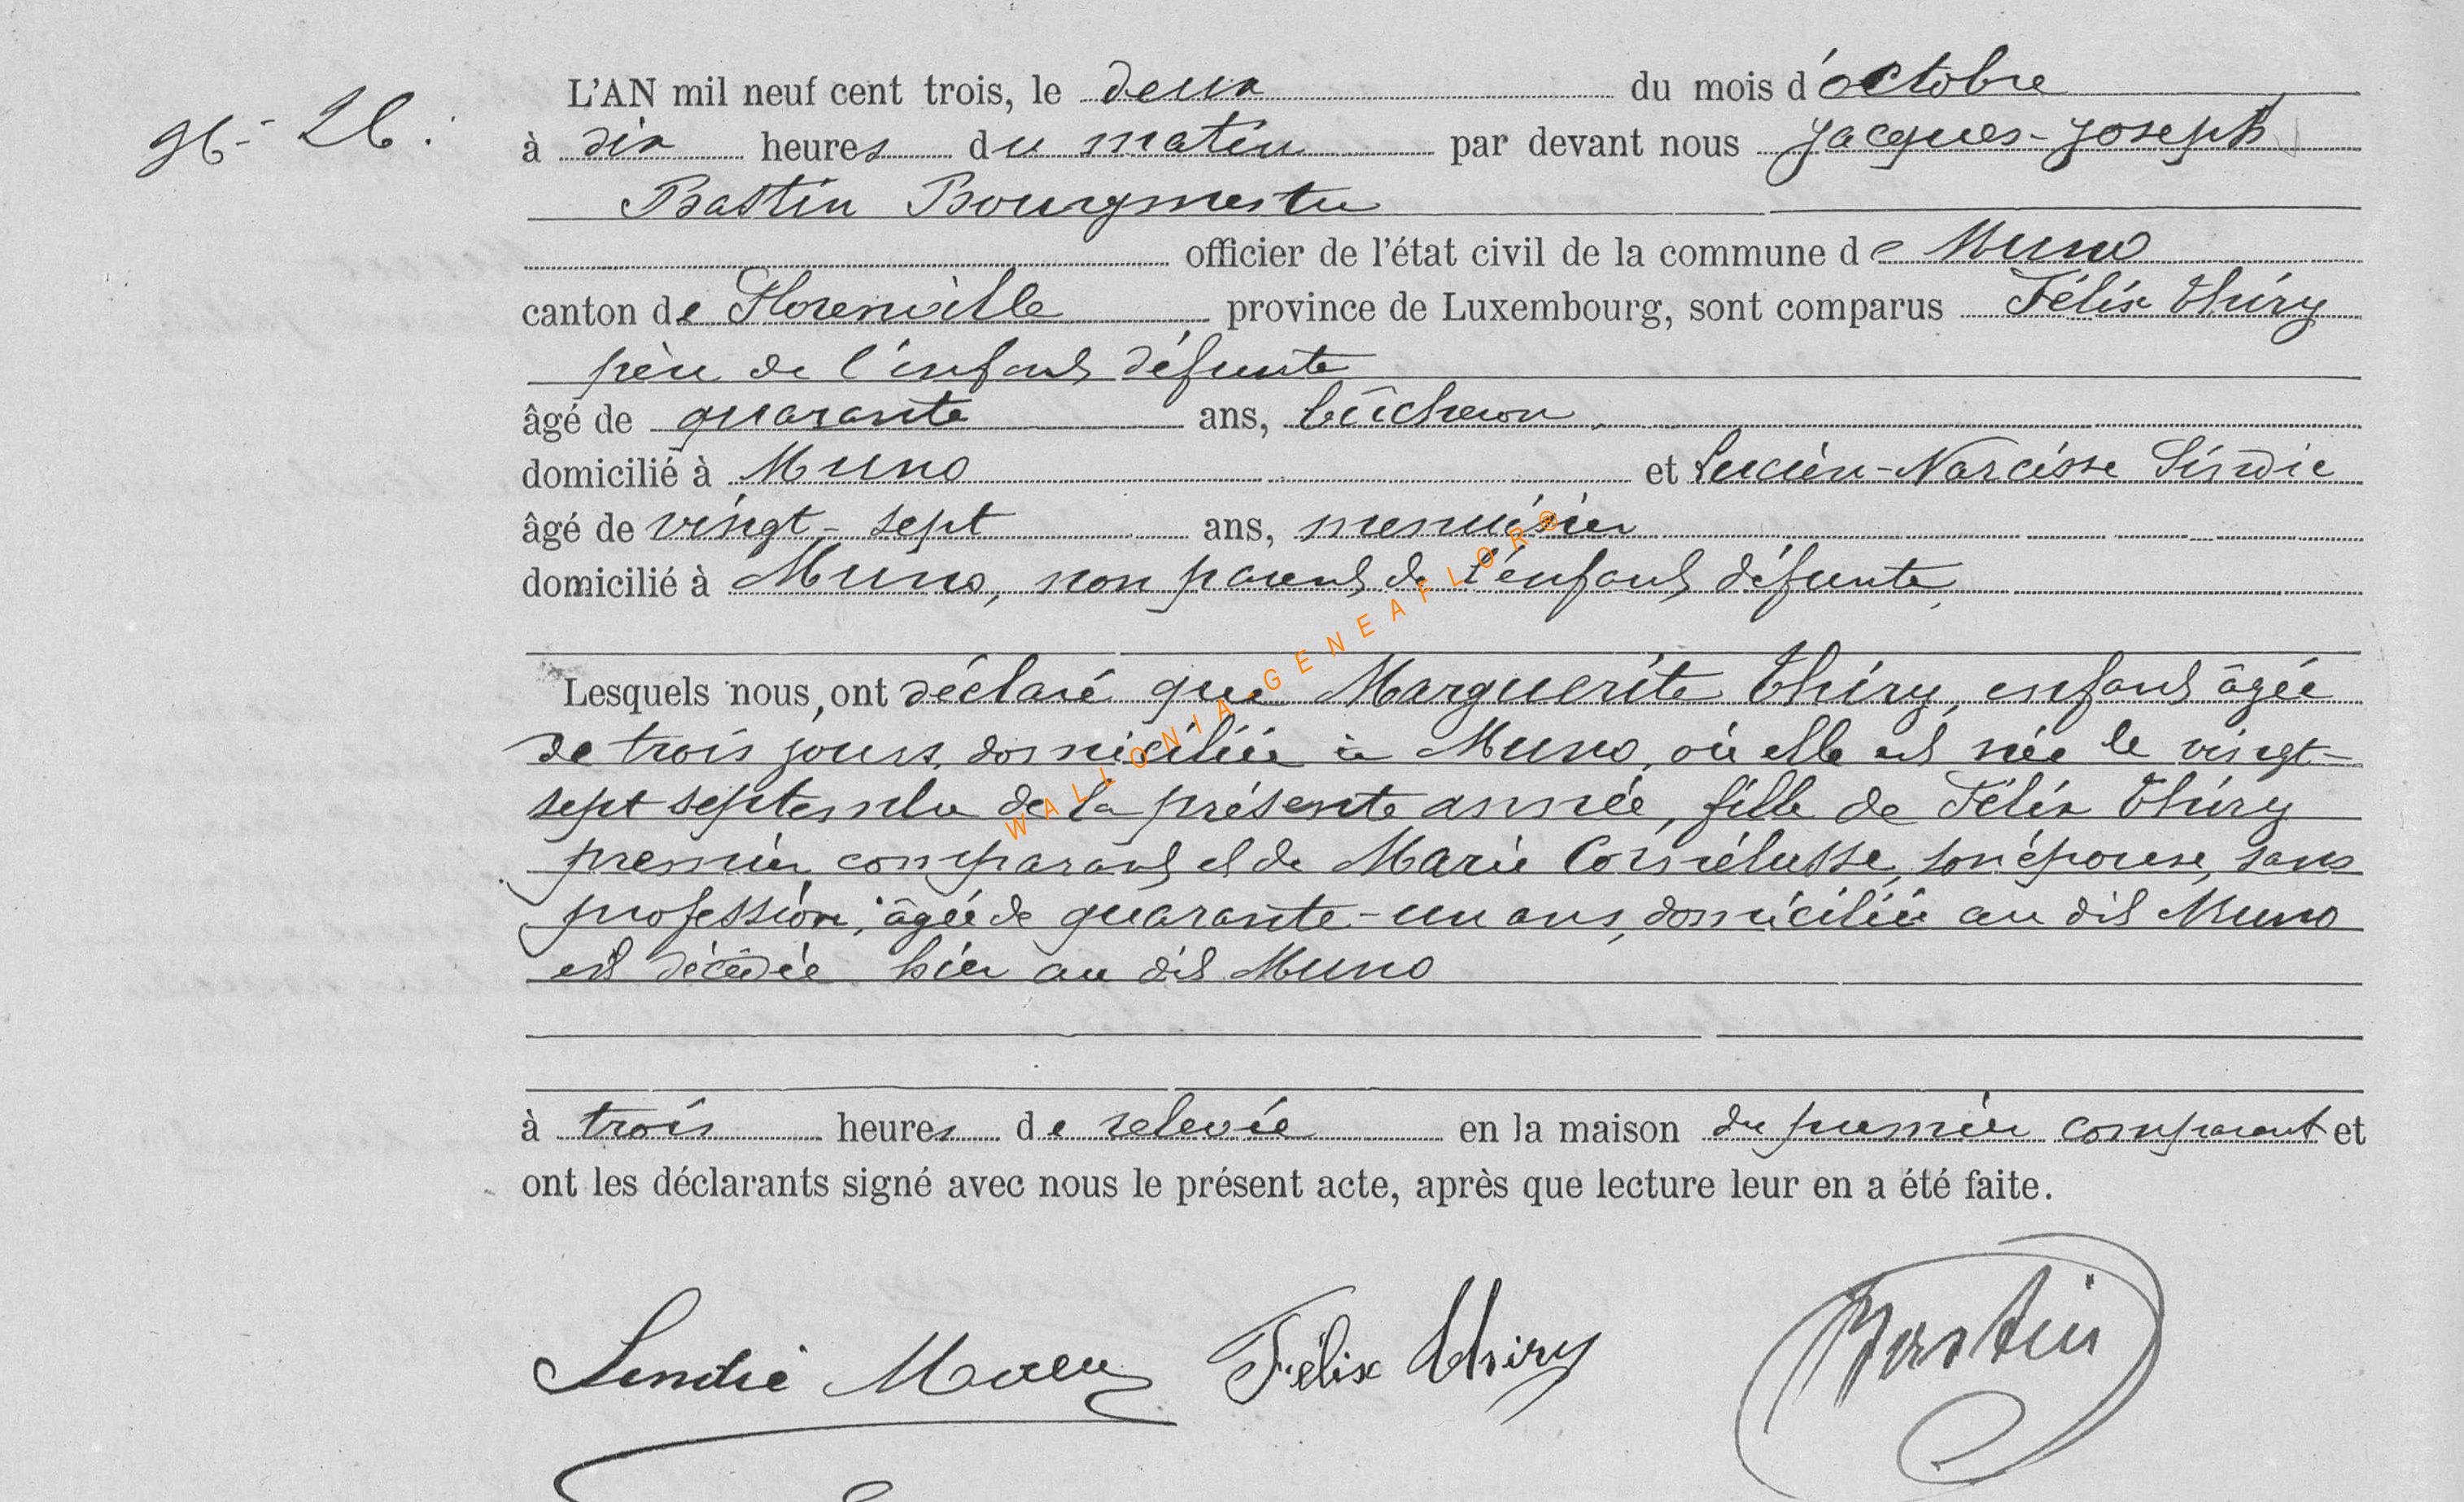 L'AN mil neuf cent trois, le deux du mois d'octobre
à dix heures du matin par devant nous Jacques-Joseph
Bastin Bourgmestre
officier de l'état civil de la commune de Muno
canton de Florenville province de Luxembourg, sont comparus Félix Thiry
père de l'enfant défunte
âgé de quarante ans, bûcheron,
domicilié à Muno et Lucien-Narcisse Sindic
âgé de vingt-sept ans, menuisier
domicilié à Muno, non parent de l'enfant défunte,
Lesquels nous, ont déclaré que Marguerite Thiry, enfant âgée
de trois jours, domiciliée à Muno, où elle est née le vingt-
sept septembre de la présente année, fille de Félix Thiry
premier comparant et de Marie Cornélusse, son épouse, sans
profession, âgée de quarante-un ans, domiciliée au dit Muno
est décédée hier au dit Muno
à trois heures de relevée en la maison du premier comparant et
ont les déclarants signé avec nous le présent acte, après que lecture leur en a été faite.
Félix Thiry Bastin
WALLONIA GENEAFLOR®